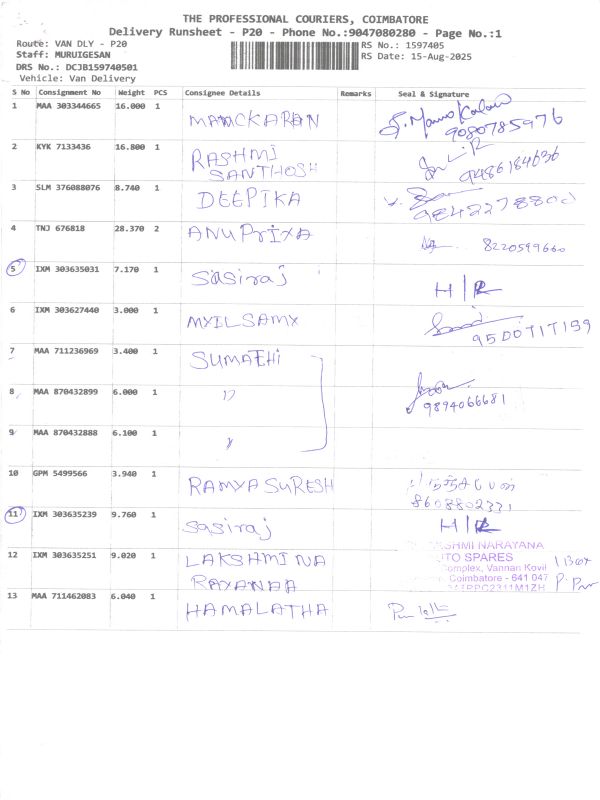 THE PROFESSIONAL COURIERS, COIMBATORE
Delivery Runsheet - P20 - Phone No.:9047080280 - Page No.:1
Route: VAN DLY - P20
RS No.: 1597405
Staff: MURUIGESAN
RS Date: 15-Aug-2025
DRS No.: DCJB159740501
Vehicle: Van Delivery
S No Consignment No Weight PCS Consignee Details Remarks Seal & Signature
1 MAA 303344665 16.000 1
9080785976
2 KYK 7133436 16.800 1 RASHMI
SANTHOSH 9486184636
3 SLM 376088076 8.740 1 DEEPIKA
4 TNJ 676818 28.370 2 ANUPriXA 8220599660
5 IXM 303635031 7.170 1 Sasiraj
6 IXM 303627440 3.000 1 MYILSAMY
7 MAA 711236969 3.400 1 SUMATHI
8 MAA 870432899 6.000 1 ,,
9894066681
9 MAA 870432888 6.100 1
10 GPM 5499566 3.940 1 RAMYA SURESH
8608802331
11 IXM 303635239 9.760 1 Sasiraj
12 IXM 303635251 9.020 1 LAKSHMI NA
RAYANAA
NARAYANA
SPARES
Vannan Kovil
Coimbatore - 641 047
1 Box
13 MAA 711462083 6.040 1 HAMALATHA